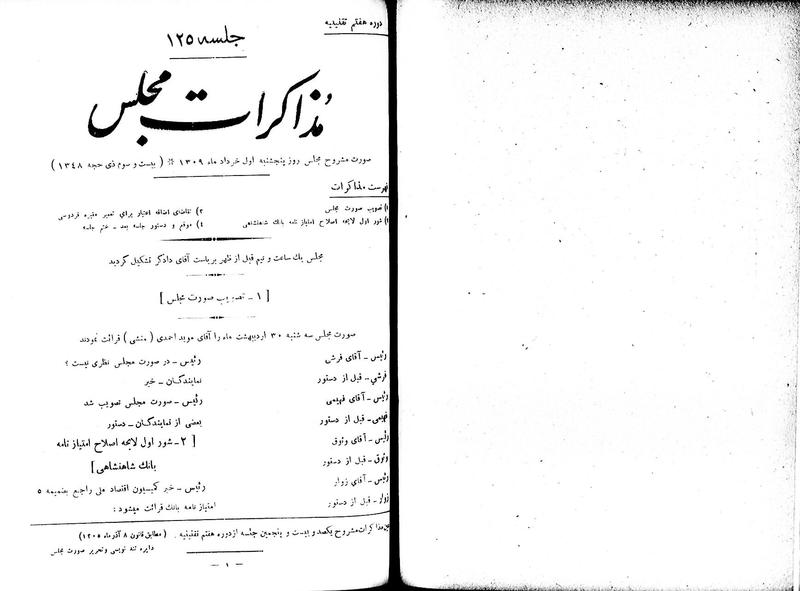 دوره هفتم تقنینیه
جلسه ۱۲۵
مذاکرات مجلس
صورت مشروح مجلس روز پنجشنبه اول خرداد ماه ۱۳۰۹ ( بیست و سوم ذی حجه ۱۳۴۸ )
فهرست مذاکرات
۱) تصویب صورت مجلس
شور اول لایحه اصلاح امتیاز نامه بانک شاهنشاهی
۳) تقاضای اضافه اعتبار برای تعمیر مقبره فردوسی
۴) موقع و دستور جلسه بعد - ختم جلسه
مجلس یک ساعت و نیم قبل از ظهر بریاست آقای دادگر تشکیل گردید
[ ۱ - تصویب صورت مجلس ]
صورت مجلس سه شنبه ۳۰ اردیبهشت ماه را آقای موید احمدی ( منشی ) قرائت نمودند
رئیس - آقای فرشی
فرشی - قبل از دستور
رئیس - آقای فهیمی
فهیمی - قبل از دستور
رئیس - آقای وثوق
وثوق - قبل از دستور
رئیس - آقای زوار
زوار - قبل از دستور
رئیس - در صورت مجلس نظری نیست ؟
نمایندگان - خیر
رئیس - صورت مجلس تصویب شد
بعضی از نمایندگان - دستور
[ ۲ - شور اول لایحه اصلاح امتیاز نامه
بانک شاهنشاهی ]
رئیس - خبر کمیسیون اقتصاد ملی راجع بضمیمه ۵
امتیاز نامه بانک قرائت میشود :
عین مذاکرات مشروح یکصد و بیست و پنجمین جلسه از دوره هفتم تقنینیه . ( مطابق قانون ۸ آذر ماه ۱۳۰۵ )
دایره تند نویسی و تحریر صورت مجلس
- ۱ -